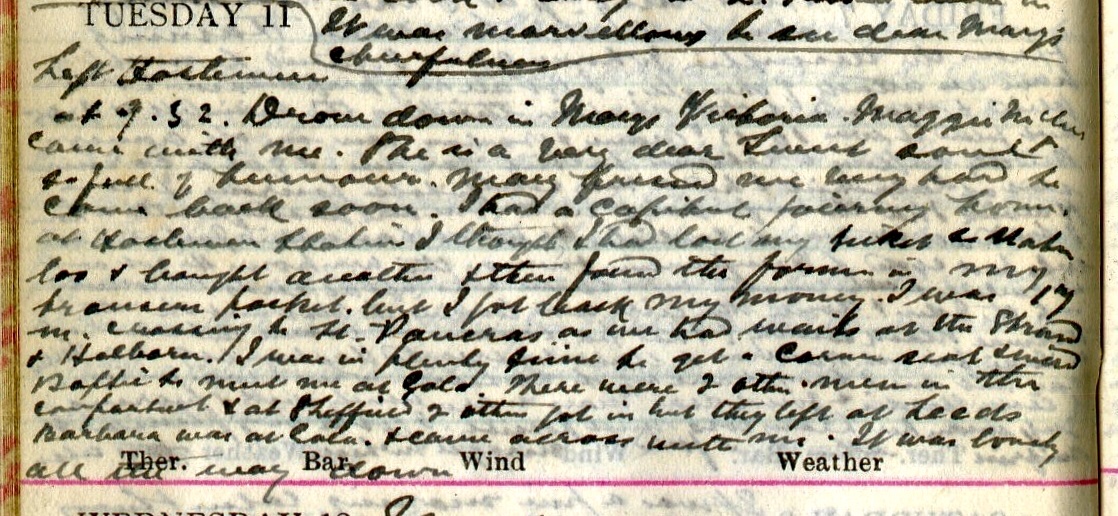 TUESDAY 11
It was marvellous to see dear Mary's
cheerfulness
Left Haslemere
at 9.52. Drove down in Mary's Victoria. Maggie
came with me. She is a very dear sweet soul &
so full of humour. Mary pressed me very hard to
come back soon. Had a capital journey home.
at Haslemere Station I thought I had lost my ticket to Water
loo & bought another & then found the former in my
trousers pocket. but I got back my money. I was
m. crossing to St. Pancras as we had waits at the Strand
& Holborn. I was in plenty time to get a corner seat &
to meet me at Cala. There were 2 other men in the
compartment & at Sheffield 2 others got in but they left at Leeds
Barbara was at Cala. & came across with me. It was lovely
all the way down
Ther. Bar. Wind Weather
WEDNESDAY 12